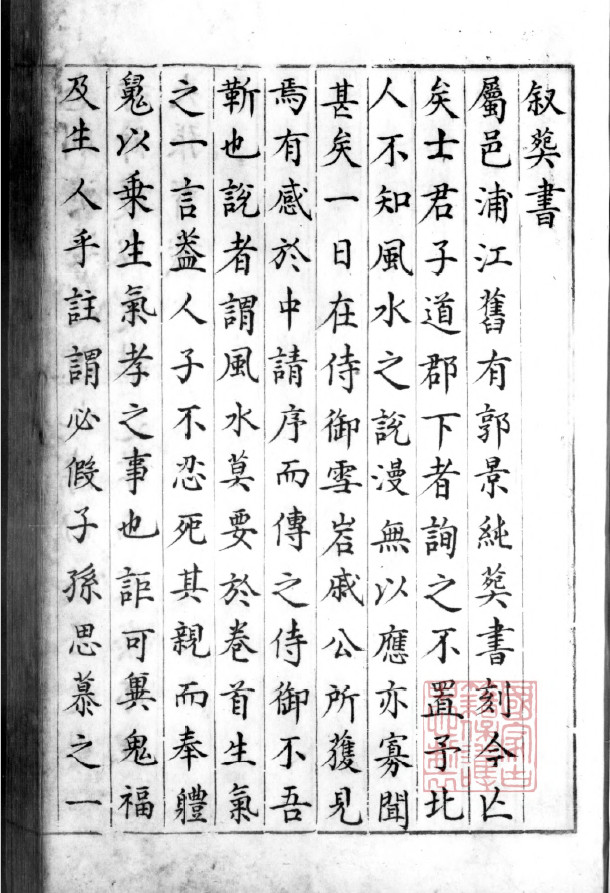 叙葬書
屬邑浦江舊有郭景純葬書刻今亾
矣士君子道郡下者詢之不置予北
人不知風水之說漫無以應亦寡聞
甚矣一日在侍御雪岩戚公所獲見
焉有感於中請序而傳之侍御不吾
靳也說者謂風水莫要於卷首生氣
之一言葢人子不忍死其親而奉軆
魄以乗生氣孝之事也詎可兾鬼福
及生人乎註謂必假子孫思慕之一